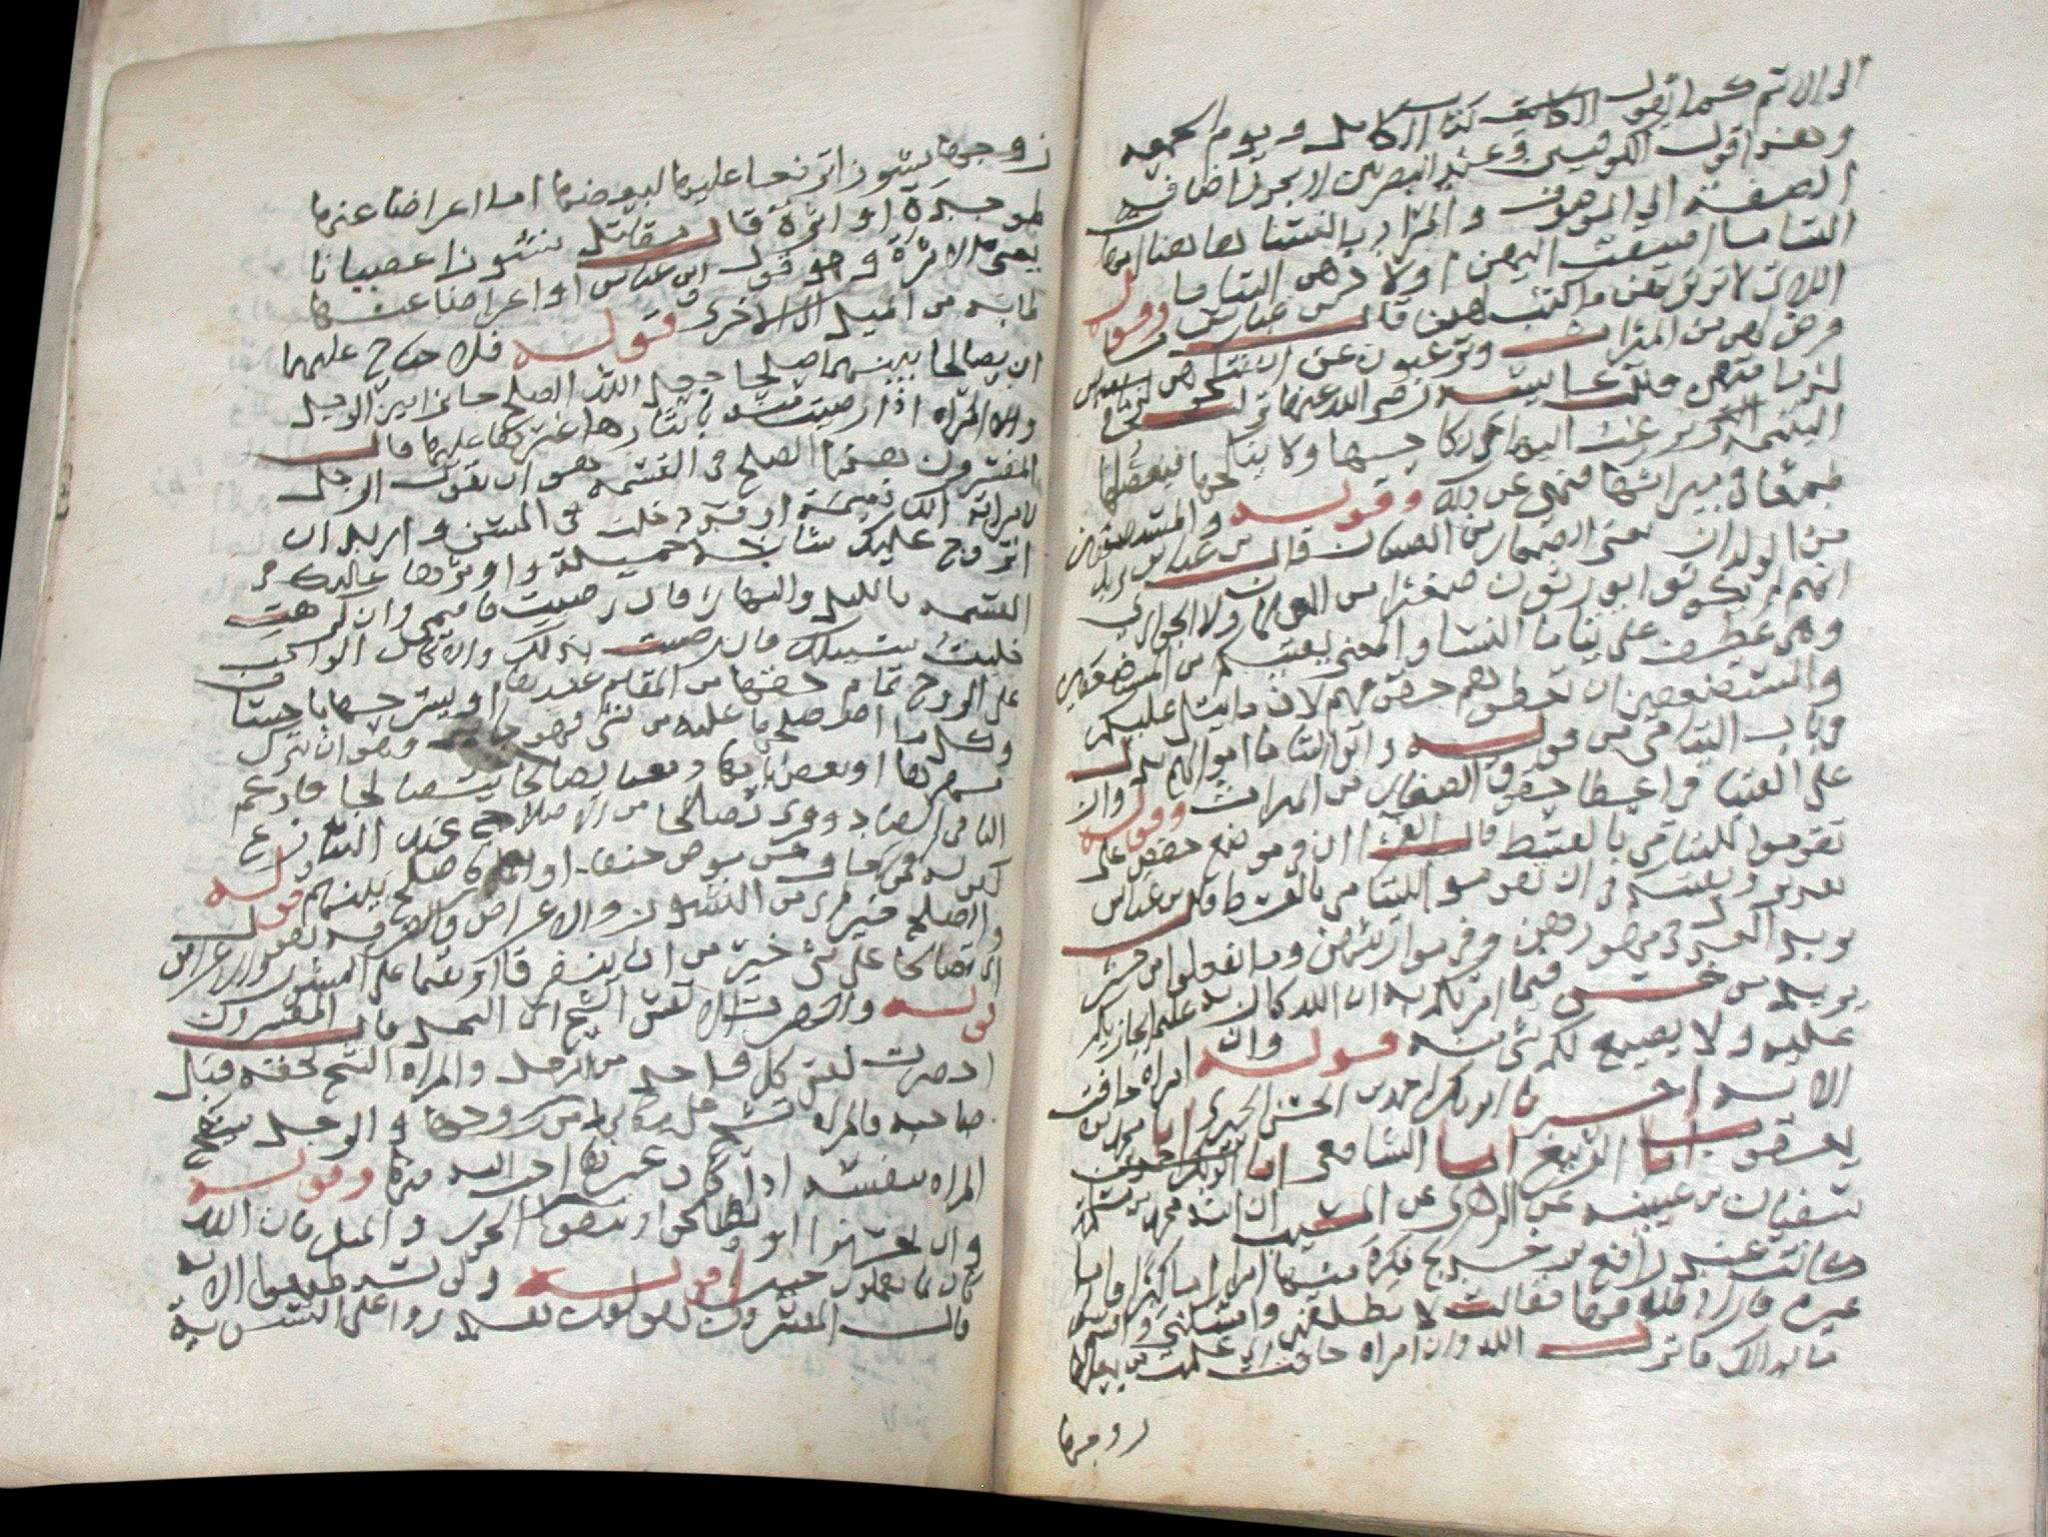 الى الاتم كما تقول الكاتب كتاب الكامل ويوم الجمعة
وهذا قول الكوفيين وعند البصريين لا يجوز اضافة
الصفة الى الموصوف والمراد بالنسا هاهنا امهات
اليتاما اضيفت اليهن اولادهن اليتاما وقوله
اللاتي لا تؤتونهن ما كتب لهن قال بن عباس يريد ما
فرض لهن من الميراث وترغبون عن ان تنكحوهن
لدمامتهن قالت عايشه رضى الله عنها نزلت في
اليتيمه يرغب وليها عن نكاحها ولا ينكحها فيعضلها
طمعا في ميراثها فنهى عن ذلك وقوله والمستضعفين
من الولدان يعنى الصغار من الصبيان قال بن عباس يريد
انهم لم يكونوا يورثون صغيرا من الغلمان ولا الجواري
وهو عطف على يتاما النسا والمعنى يفتيكم في المستضعفين
والمستضعفين ان تعطوهم حقوقهم لان ما يتلى عليكم
في باب اليتامى من قوله واتوا اليتاما اموالهم يدل
على الفتيا في اعطا حقوق الصغار من الميراث وقوله وان
تقوموا لليتامى بالقسط قال الفرا ان في موضع خفض على
تقدير ويفتيكم في ان تقوموا لليتامى بالقسط قال بن عباس
يريد العدل في مهورهن وفي مواريثهن وما تفعلوا من خير
يريد من حسن فيما امرتكم به ان الله كان به عليما يجازيكم
عليه ولا يضيع لكم شى منه قوله وان امراه خافت
الايه اخبرنا ابو بكر احمد بن الحسن الحيري انا محمد بن
يعقوب انا الربيع انا الشافعي انا
سفيان بن عيينه عن الزهرى عن بن المسيب ان ابنة محمد بن مسلمة
كانت عند رافع بن خديج فكره منها امرا اما كبرا واما
غيره فاراد طلاقها فقالت لا تطلقني وامسكني واقسم
ما بدالك فانزل الله وان امراه خافت اي علمت من بعلها
زوجها
زوجها نشوزا ترفعا عليها لبغضها او اعراضا عنها
لموجدة او اثرة قال مقاتل نشوزا عصيانا
يعنى الاثرة وهو قول ابن عباس او اعراضا عنها
لما به من الميل الى الاخرى قوله فلا جناح عليهما
ان يصالحا بينهما صلحا جعل الله الصلح جائزا بين الرجل
والمراه اذا رضيت منه بايثاره غيرها عليها قال
المفسرون هذا الصلح في القسمه وهو ان يقول الرجل
لامراته انك دميمة او قد دخلت في السن واريد ان
اتزوج عليك شابة جميلة واوثرها عليك في
القسمه بالليل والنهار فان رضيت فاقيمى وان كرهت
خليت سبيلك فان رضيت بذلك والا كان الواجب
على الزوج تمام حقها من المقام عندها او يسرحها باحسان
وكل ما اصطلحا عليه من شى فهو جايز وهو ان تترك
من مهرها او بعض ايامها ومعنا يصالحا يتصالحا فادغم
التا في الصاد وقرى يصلحا من الاصلاح عند التنازع
كقوله فمن خاف من موص جنفا او اثما فاصلح بينهم قوله
والصلح خير من النشوز والاعراض والفرقه يقول
ان تصالحا على شى خير من ان يتفرقا او يقيما على النشوز والاعراض
قوله واحضرت الانفس الشح اى البخل قال المفسرون
احضرت نفس كل واحد من الرجل والمراه الشح بحقه قبل
صاحبه فالمراه تشح على مكانها من زوجها والرجل يشح على
المراه بنفسه اذا كان غيرها احب اليه منها وقوله
وان تحسنوا اي تصلحوا وتتقوا الجور والميل فان الله
كان بما تعملون خبيرا قوله ولن تستطيعوا الايه
قال المفسرون يقول لن تقدروا على التسوية